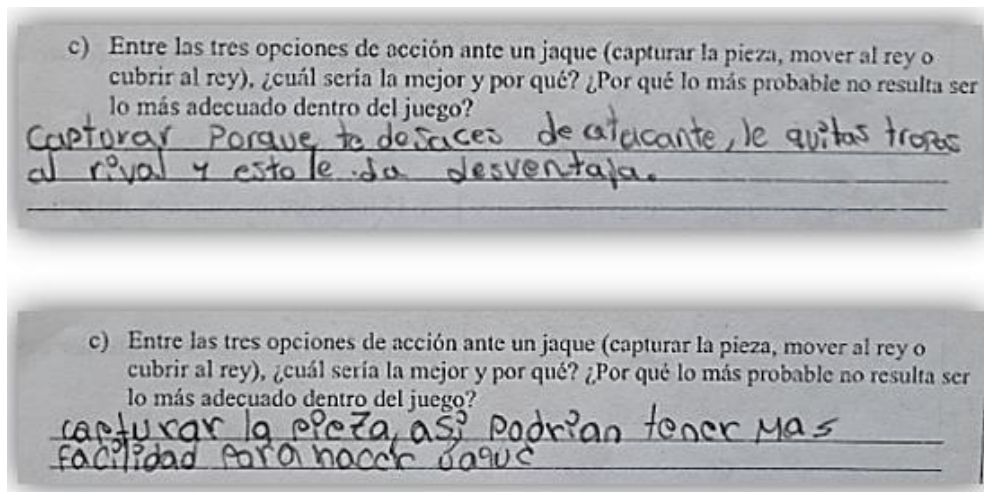 c) Entre las tres opciones de acción ante un jaque (capturar la pieza, mover al rey o
cubrir al rey), ¿cuál sería la mejor y por qué? ¿Por qué lo más probable no resulta ser
lo más adecuado dentro del juego?
Capturar Porque te desaces de atacante, le quitas tropas
al rival y esto le da desventaja.
c) Entre las tres opciones de acción ante un jaque (capturar la pieza, mover al rey o
cubrir al rey), ¿cuál sería la mejor y por qué? ¿Por qué lo más probable no resulta ser
lo más adecuado dentro del juego?
capturar la pieza, así podrían tener Mas
facilidad para hacer jaque